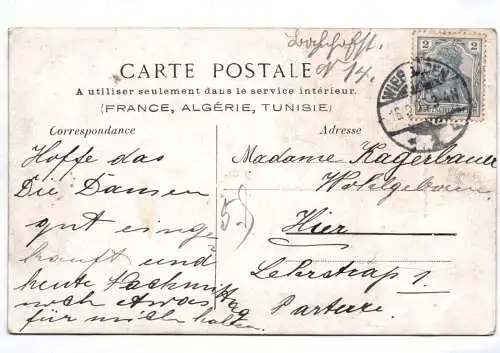 N 14.
2
CARTE POSTALE
A utiliser seulement dans le service intérieur.
(FRANCE, ALGÉRIE, TUNISIE)
WIESBADEN
Correspondance
Adresse
Hoffe das
Die Damen
gut einge
kauft und
heute Nachmittag
noch etwas
für mich haben.
5
Madame Kagerbauer
Wohlgeboren
Hier
Lehrstraße 1.
Parterre.